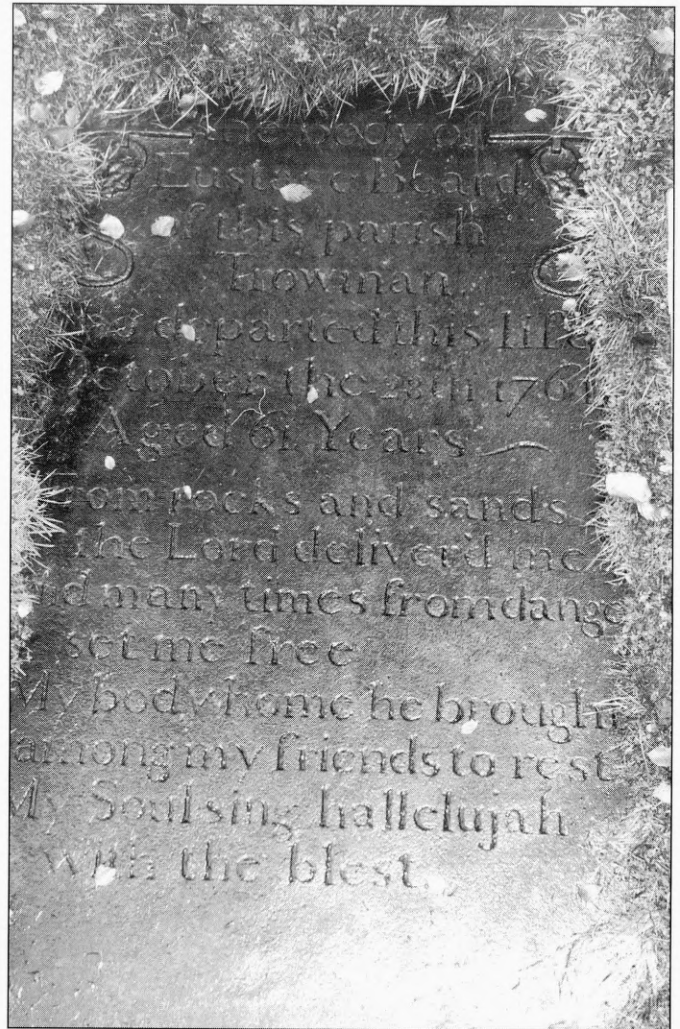 the body of
Eustace Beard
of this parish
Trowman
departed this life
October the 28th 176
Aged 61 Years
rom rocks and sands
the Lord deliver'd me
nd many times from dange
set me free
My body home he brought
among my friends to rest
My Soul sing hallelujah
with the blest.